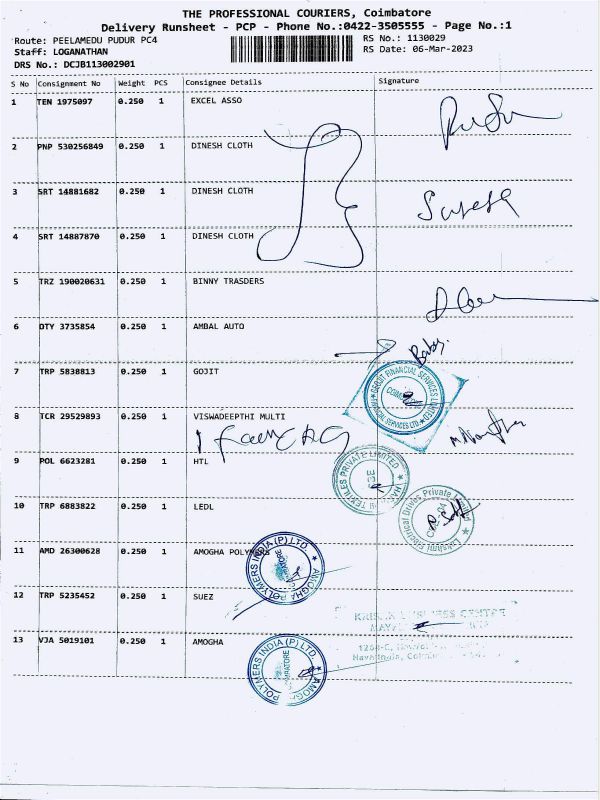 THE PROFESSIONAL COURIERS, Coimbatore
Delivery Runsheet - PCP - Phone No.:0422-3505555 - Page No.:1
Route: PEELAMEDU PUDUR PC4 RS No.: 1130029
Staff: LOGANATHAN RS Date: 06-Mar-2023
DRS No.: DCJB113002901
S No Consignment No Weight PCS Consignee Details Signature
1 TEN 1975097 0.250 1 EXCEL ASSO
2 PNP 530256849 0.250 1 DINESH CLOTH
3 SRT 14881682 0.250 1 DINESH CLOTH
Suresh
4 SRT 14887870 0.250 1 DINESH CLOTH
5 TRZ 190020631 0.250 1 BINNY TRASDERS
6 DTY 3735854 0.250 1 AMBAL AUTO
Baby
7 TRP 5838813 0.250 1 GOJIT
FINANCIAL SERVICES LIMITED
8 TCR 29529893 0.250 1 VISWADEEPTHI MULTI
9 POL 6623281 0.250 1 HTL
TEXTILES PRIVATE LIMITED
10 TRP 6883822 0.250 1 LEDL
Lakshmi Electrical Drives Private Limited
11 AMD 26300628 0.250 1 AMOGHA POLYMERS
AMOGHA POLYMERS INDIA (P) LTD.
12 TRP 5235452 0.250 1 SUEZ
13 VJA 5019101 0.250 1 AMOGHA
AMOGHA POLYMERS INDIA (P) LTD.